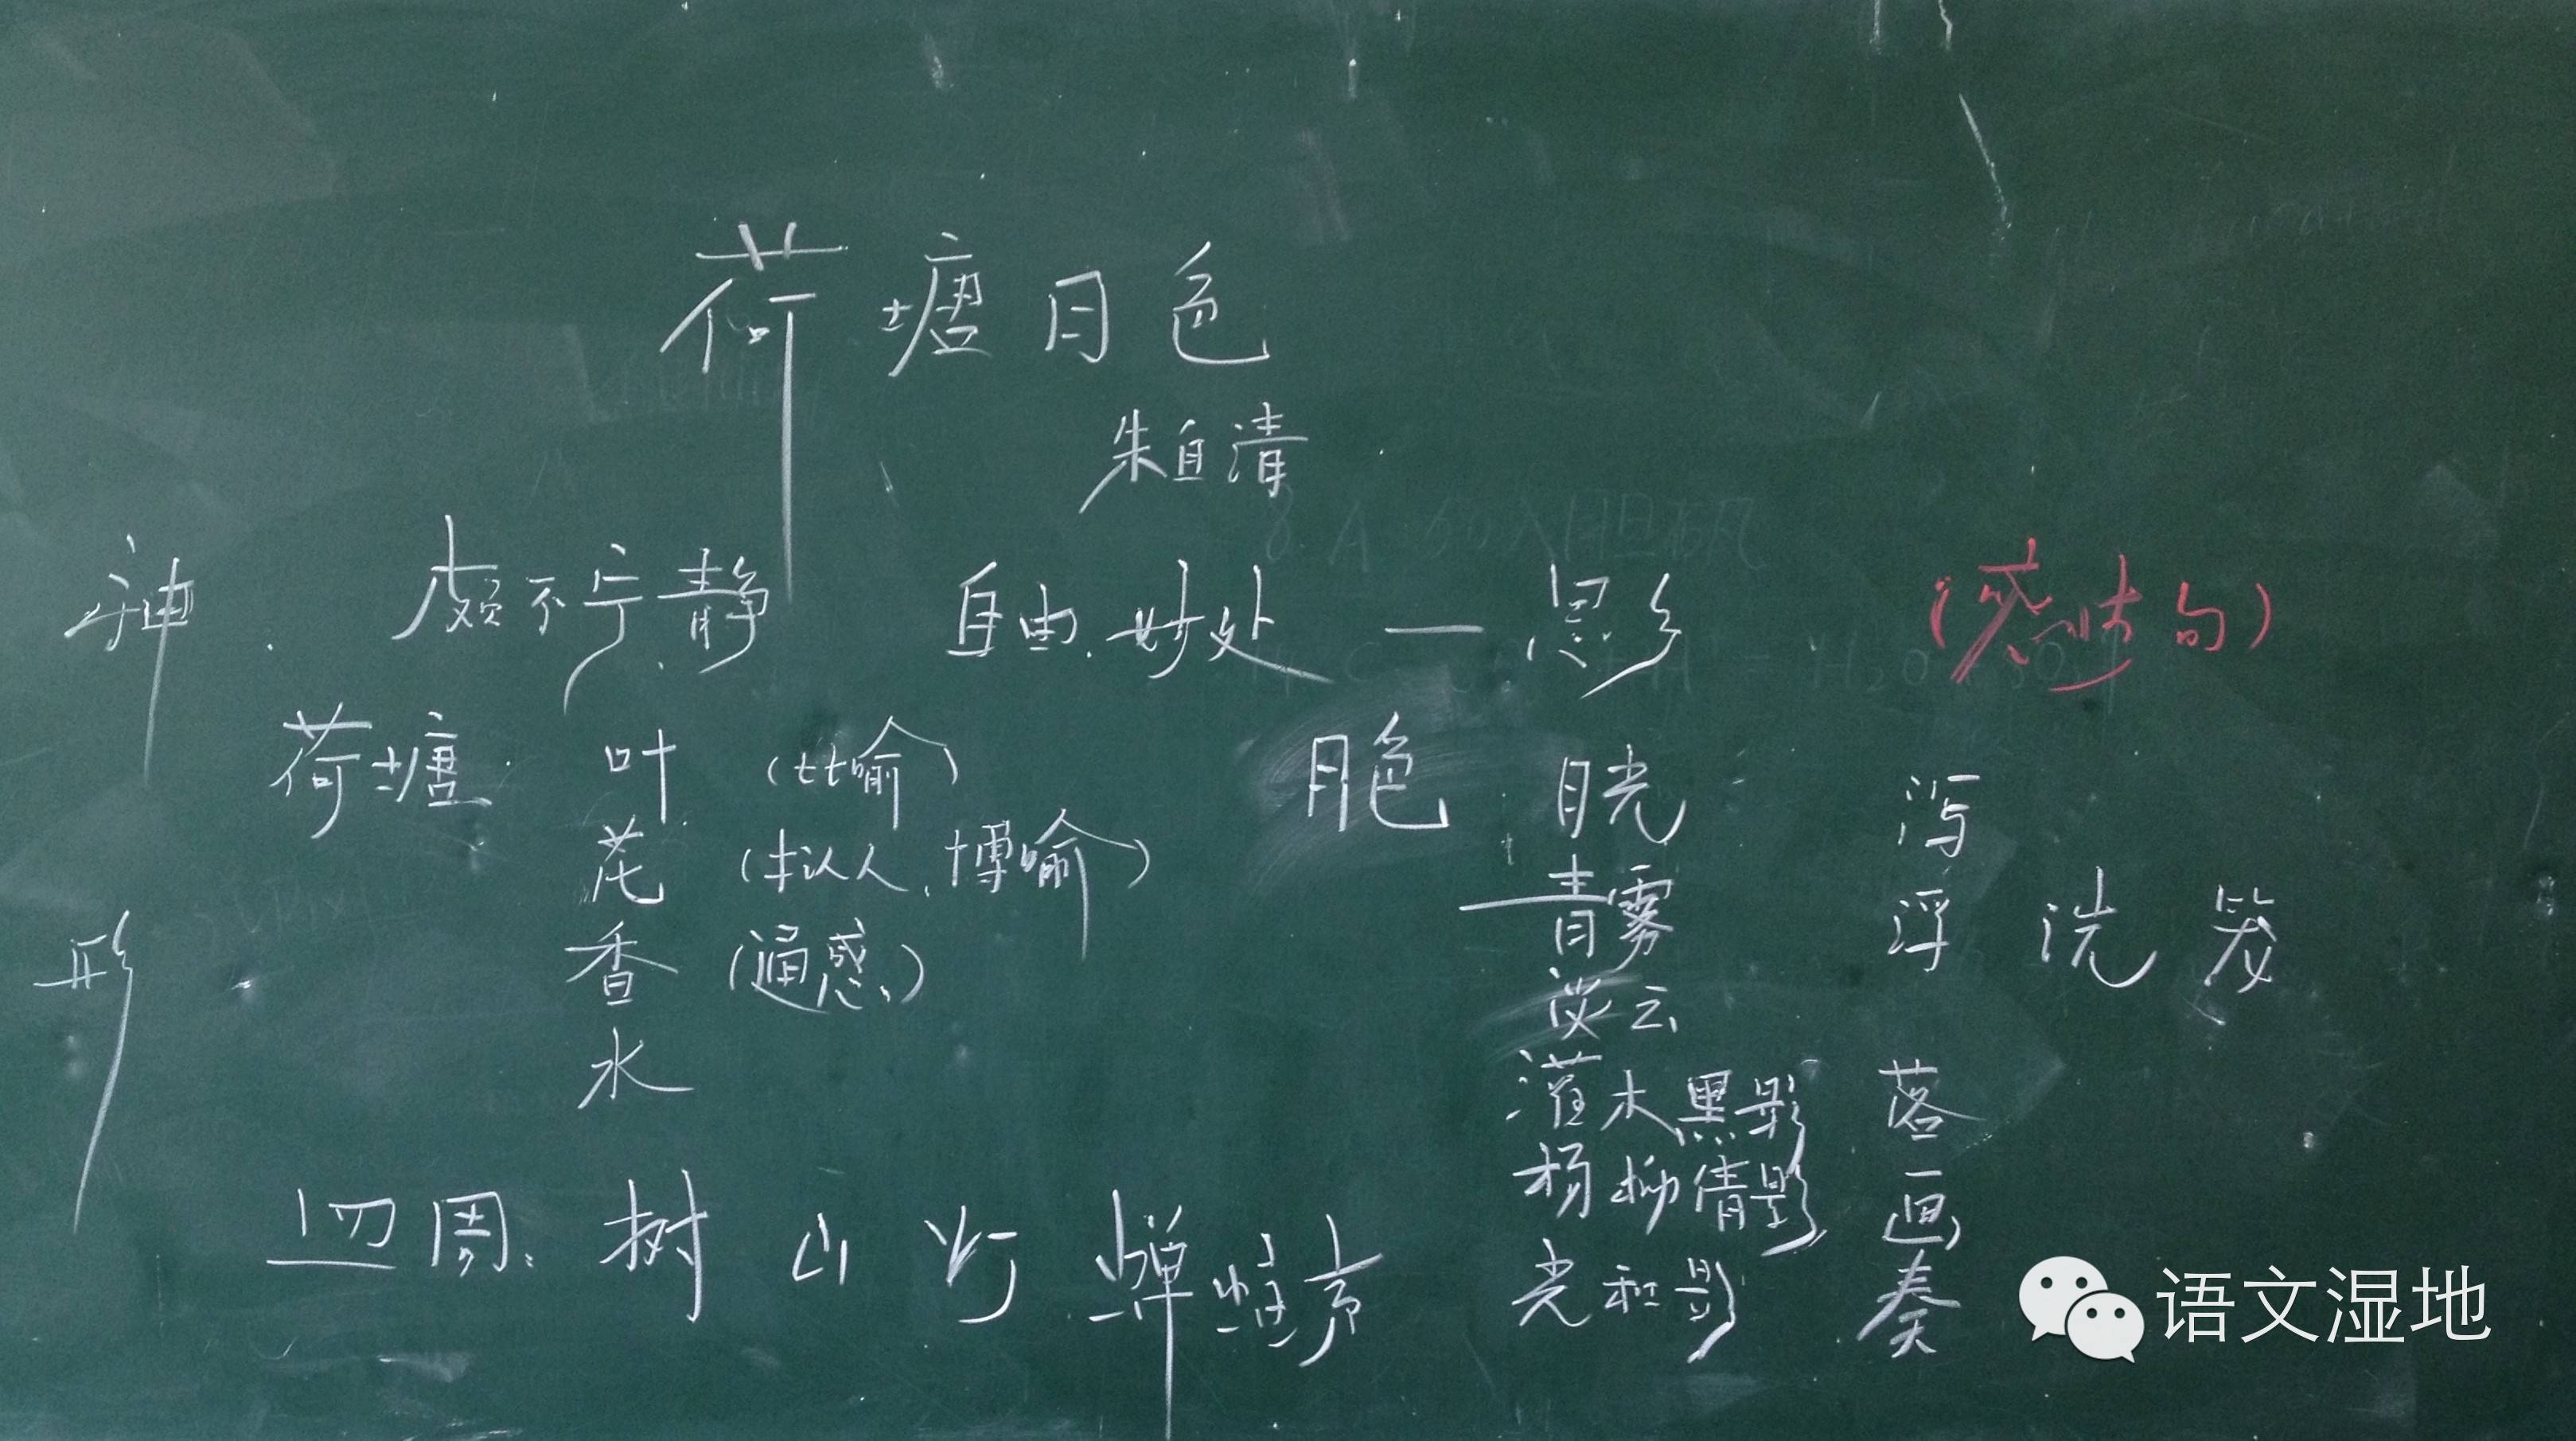 荷塘月色
朱自清
神 颇不宁静 自由.妙处 — 思乡 (感味句)
荷塘 叶 (比喻) 月色 月光 泻
花 (拟人、博喻) 青雾 浮 洗 笼
形 香 (通感)
淡云
水 灌木黑影 落
杨柳倩影 画
四周: 树 山 灯 蝉蛙声 光和影 奏
语文湿地